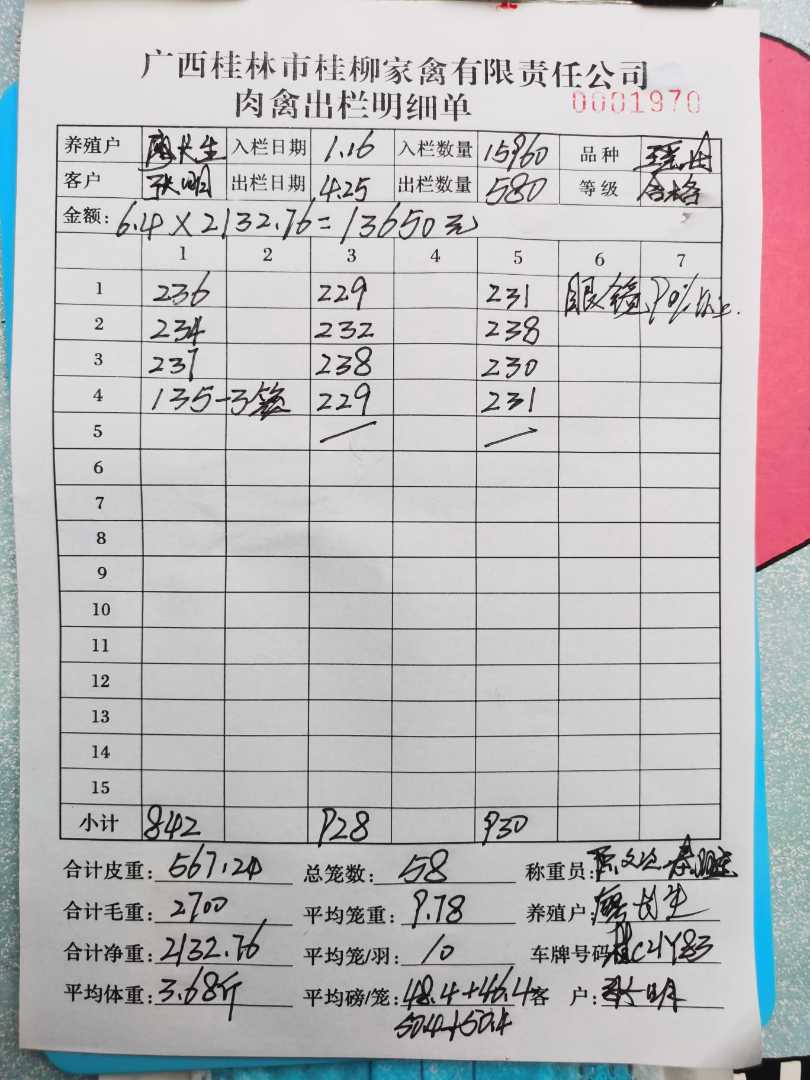 广西桂林市桂柳家禽有限责任公司
肉禽出栏明细单 0001970
养殖户 入栏日期 1.16 入栏数量 15960 品种
客户 张明 出栏日期 4.25 出栏数量 580 等级 合格
金额: 6.4×2132.76=13650元
1 2 3 4 5 6 7
1 236 229 231 眼镜90%以上.
2 234 232 238
3 237 238 230
4 135-3笼 229 231
5
6
7
8
9
10
11
12
13
14
15
小计 842 928 930
合计皮重: 567.24 总笼数: 58 称重员:
合计毛重: 2700 平均笼重: 9.78 养殖户: 长生
合计净重: 2132.76 平均笼/羽: 10 车牌号码 桂C21Y83
平均体重: 3.68斤 平均磅/笼: 48.4+46.4 客 户: 张明
50.4+50.4